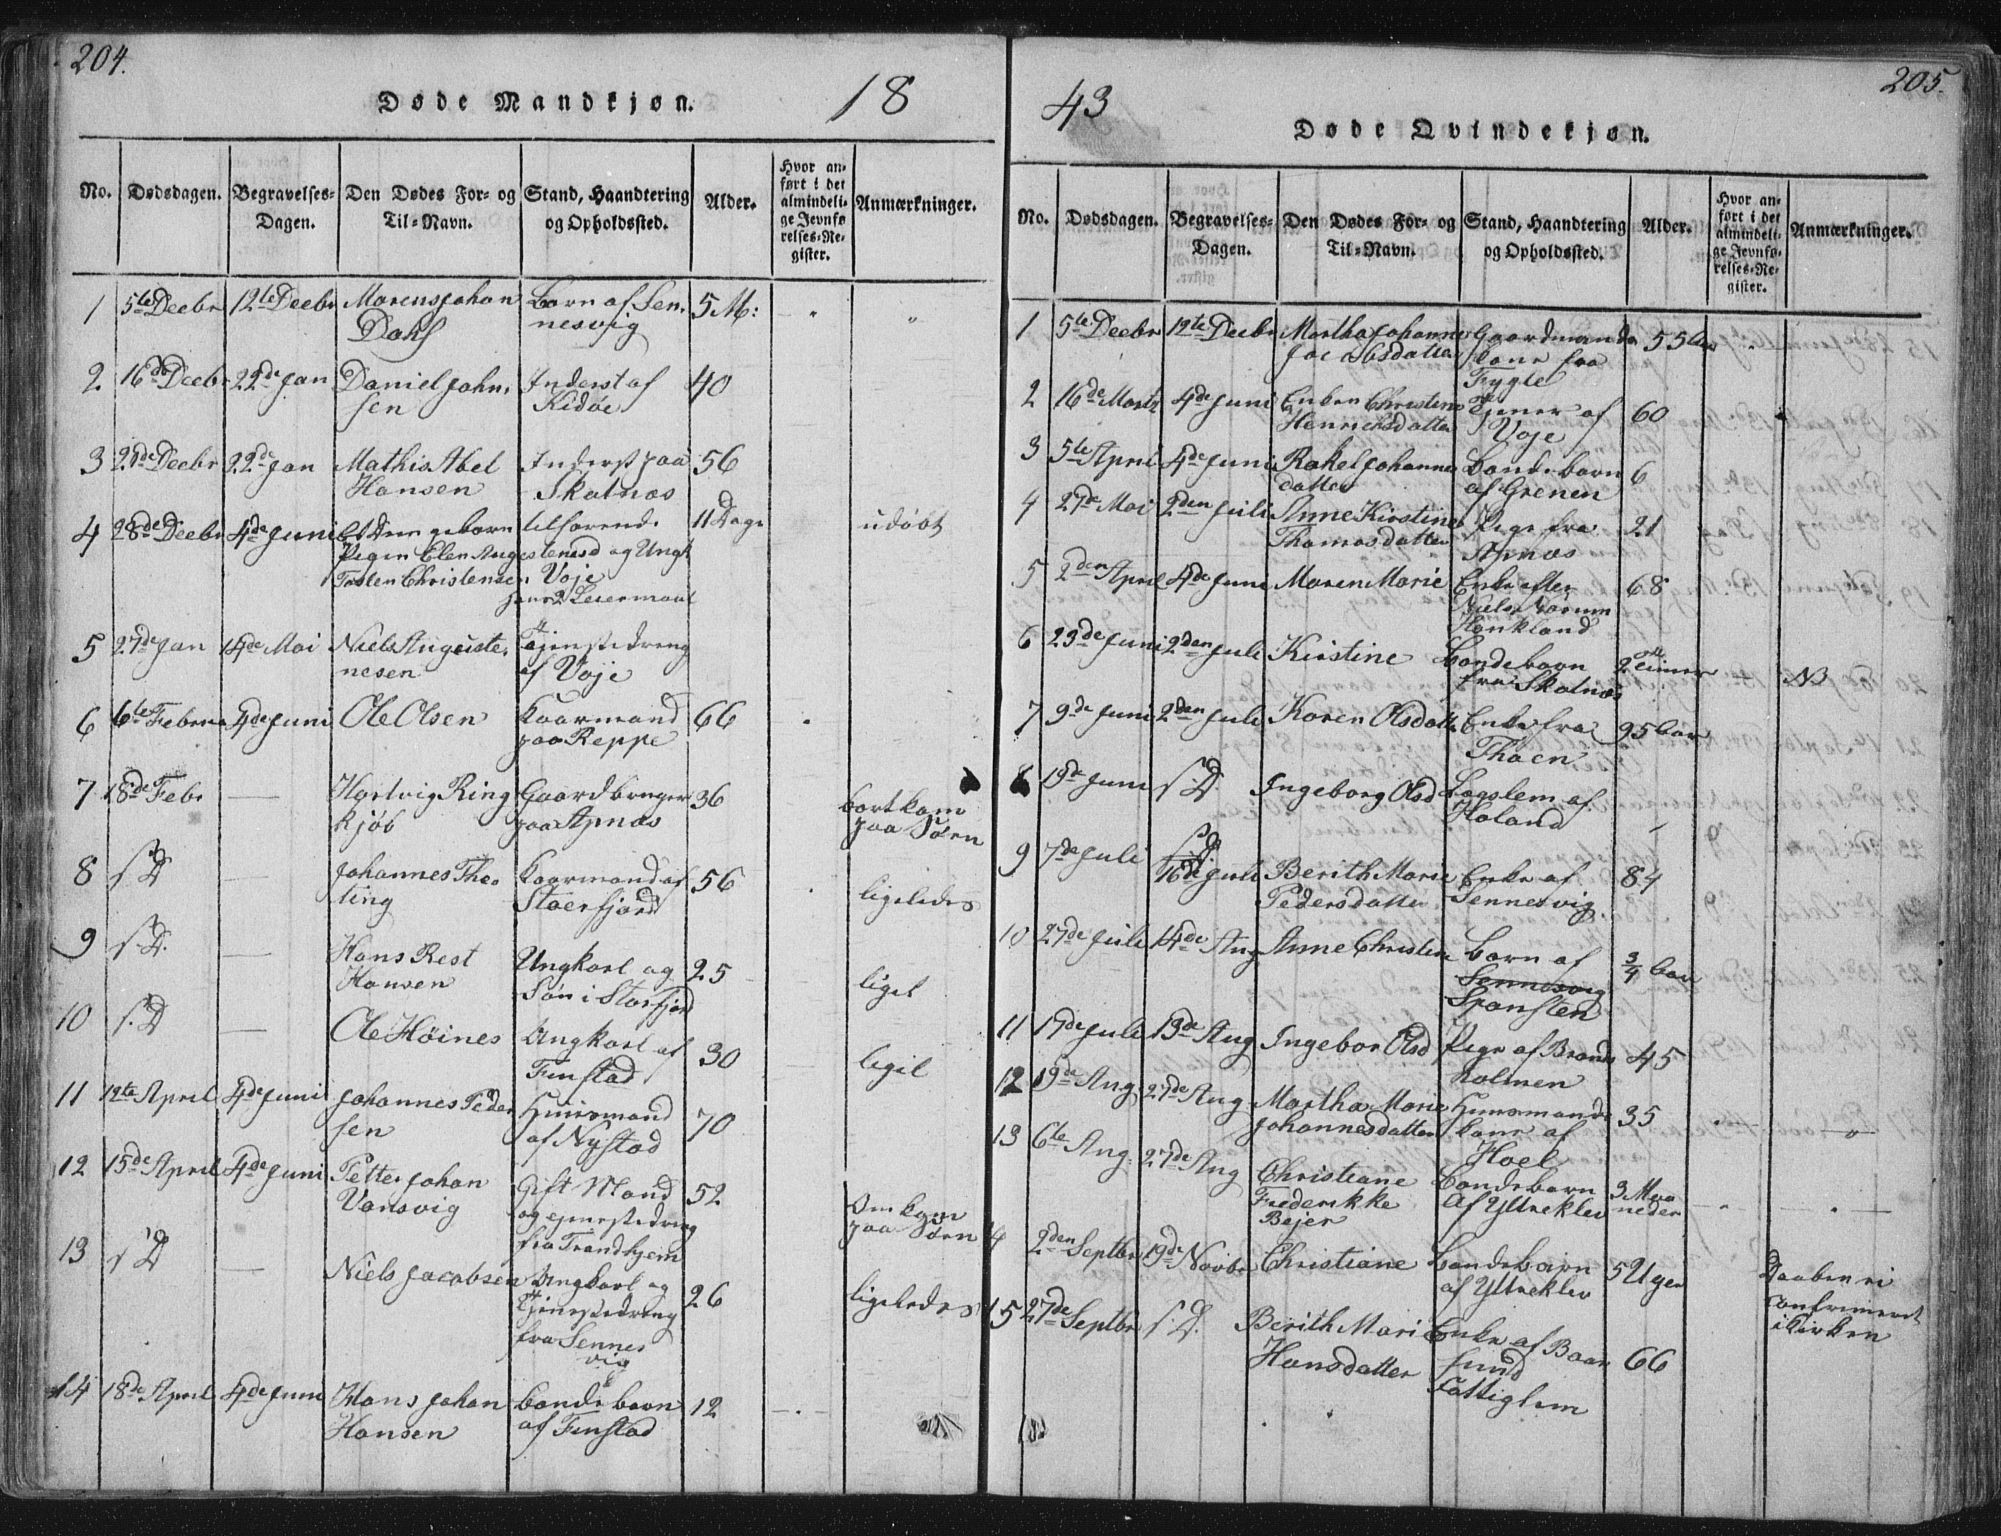 204.
Døde Mandkjøn.
18
No. Dødsdagen. Begravelses-Dagen. Den Dødes For- og Til-Navn. Stand, Haandtering og Opholdssted. Alder. Hvor anført i det almindelige Jevnførelses-Register. Anmærkninger.
1 5te Decbr 12te Decbr Marcus Johan Barn af Sen- 5 M:
Dahl nesvig
2 16de Decbr 22de Jan Daniel John- Inderst af 40
sen
3 21de Decbr 22de Jan Mathis Abel Inderst paa 56
Hansen Skotnæs
4 28de Decbr 4de Juni 11 Dage udøbt
Pigen Elen og Ungk
Christensen Voje
5 27de Jan 14de Mai Niels Auguste- Tjenstedreng
nesen af Voje
6 6te Februar 4de Juni Ole Olsen Kaarmand 66
paa Reppe
7 18de Febr — Hartvig Ring Gaardbruger 36 bortkom
kjøb paa Apnæs paa Søen
8 s. D — Johannes Kaarmand af 56 ligeledes
ting Staerfjord
9 s. D. — Hans Rest Ungkarl og 25 liget
Hansen Søn i Storfjord
10 s. D — Ole Høines Ungkarl af 30 liget
Finstad
11 12te April 4de Juni Johannes Peder Huusmand 70
sen af Nystad
12 15de April 4de Juni Petter Johan Gift Mand 52 Omkom
Vansvig og tjenstedreng paa Søen
fra Trondhjem
13 s. D — Niels Jacobsen Ungkarl og 26 ligeledes
Tjenstedreng
fra Sennes
vig
14 18de April 4de Juni Hans Johan Bondebarn 12
Hansen af Finstad
43
205.
Døde Qvindekjøn.
No. Dødsdagen. Begravelses-Dagen. Den Dødes For- og Til-Navn. Stand, Haandtering og Opholdssted. Alder. Hvor anført i det almindelige Jevnførelses-Register. Anmærkninger.
1 5te Decbr 12te Decbr Martha Johanne Gaardmands 55 Aar
Jacobsdatter kone fra
Fygle
2 16de Marts 4de Juni Enken Christine Tjener af 60
Henrichsdatter Voje
3 5te April 4de Juni Rakel Johannes Bondebarn 6
datter af Grenen
4 27de Mai 2den Juli Anne Kirstine Pige fra 21
Thomasdatter Apnæs
5 2den April 4de Juni Maren Marie Enke efter 68
Niels
Haukland
6 23de Juni 2den Juli Kirstine Bondebarn 2 timer — NB
fra Skotnæs
7 9de Juni 2den Juli Karen Olsdatter Enke fra 95 Aar
Thoen
8 19de Juni s. D Ingeborg Olsd Lægslem af
Holand
9 7de Juli 16de Juli Berith Marie Enke af 84
Pedersdatter Sennesvig
10 27de Juli 14de Aug Anne Christine Barn af 3/4 Aar
Sennesvig
Spansten
11 17de Juli 13de Aug Ingebor Olsd Pige af Brands 45
holmen
12 19de Aug. 27de Aug Martha Marie Huusmands 35
Johannesdatter kone af
Hoel
13 6te Aug. 27de Aug Christiane Bondebarn 3 Maa
Frederikke af Yttreklev neder
Bejer
14 2den Septbr 19de Novbr Christiane Bondebarn 5 Uger Daaben ei
af Yttreklev confirmeret
i Kirken
15 27de Septbr s. D. Berith Mari Enke af Baar 66
Hansdatter sund
Fattiglem